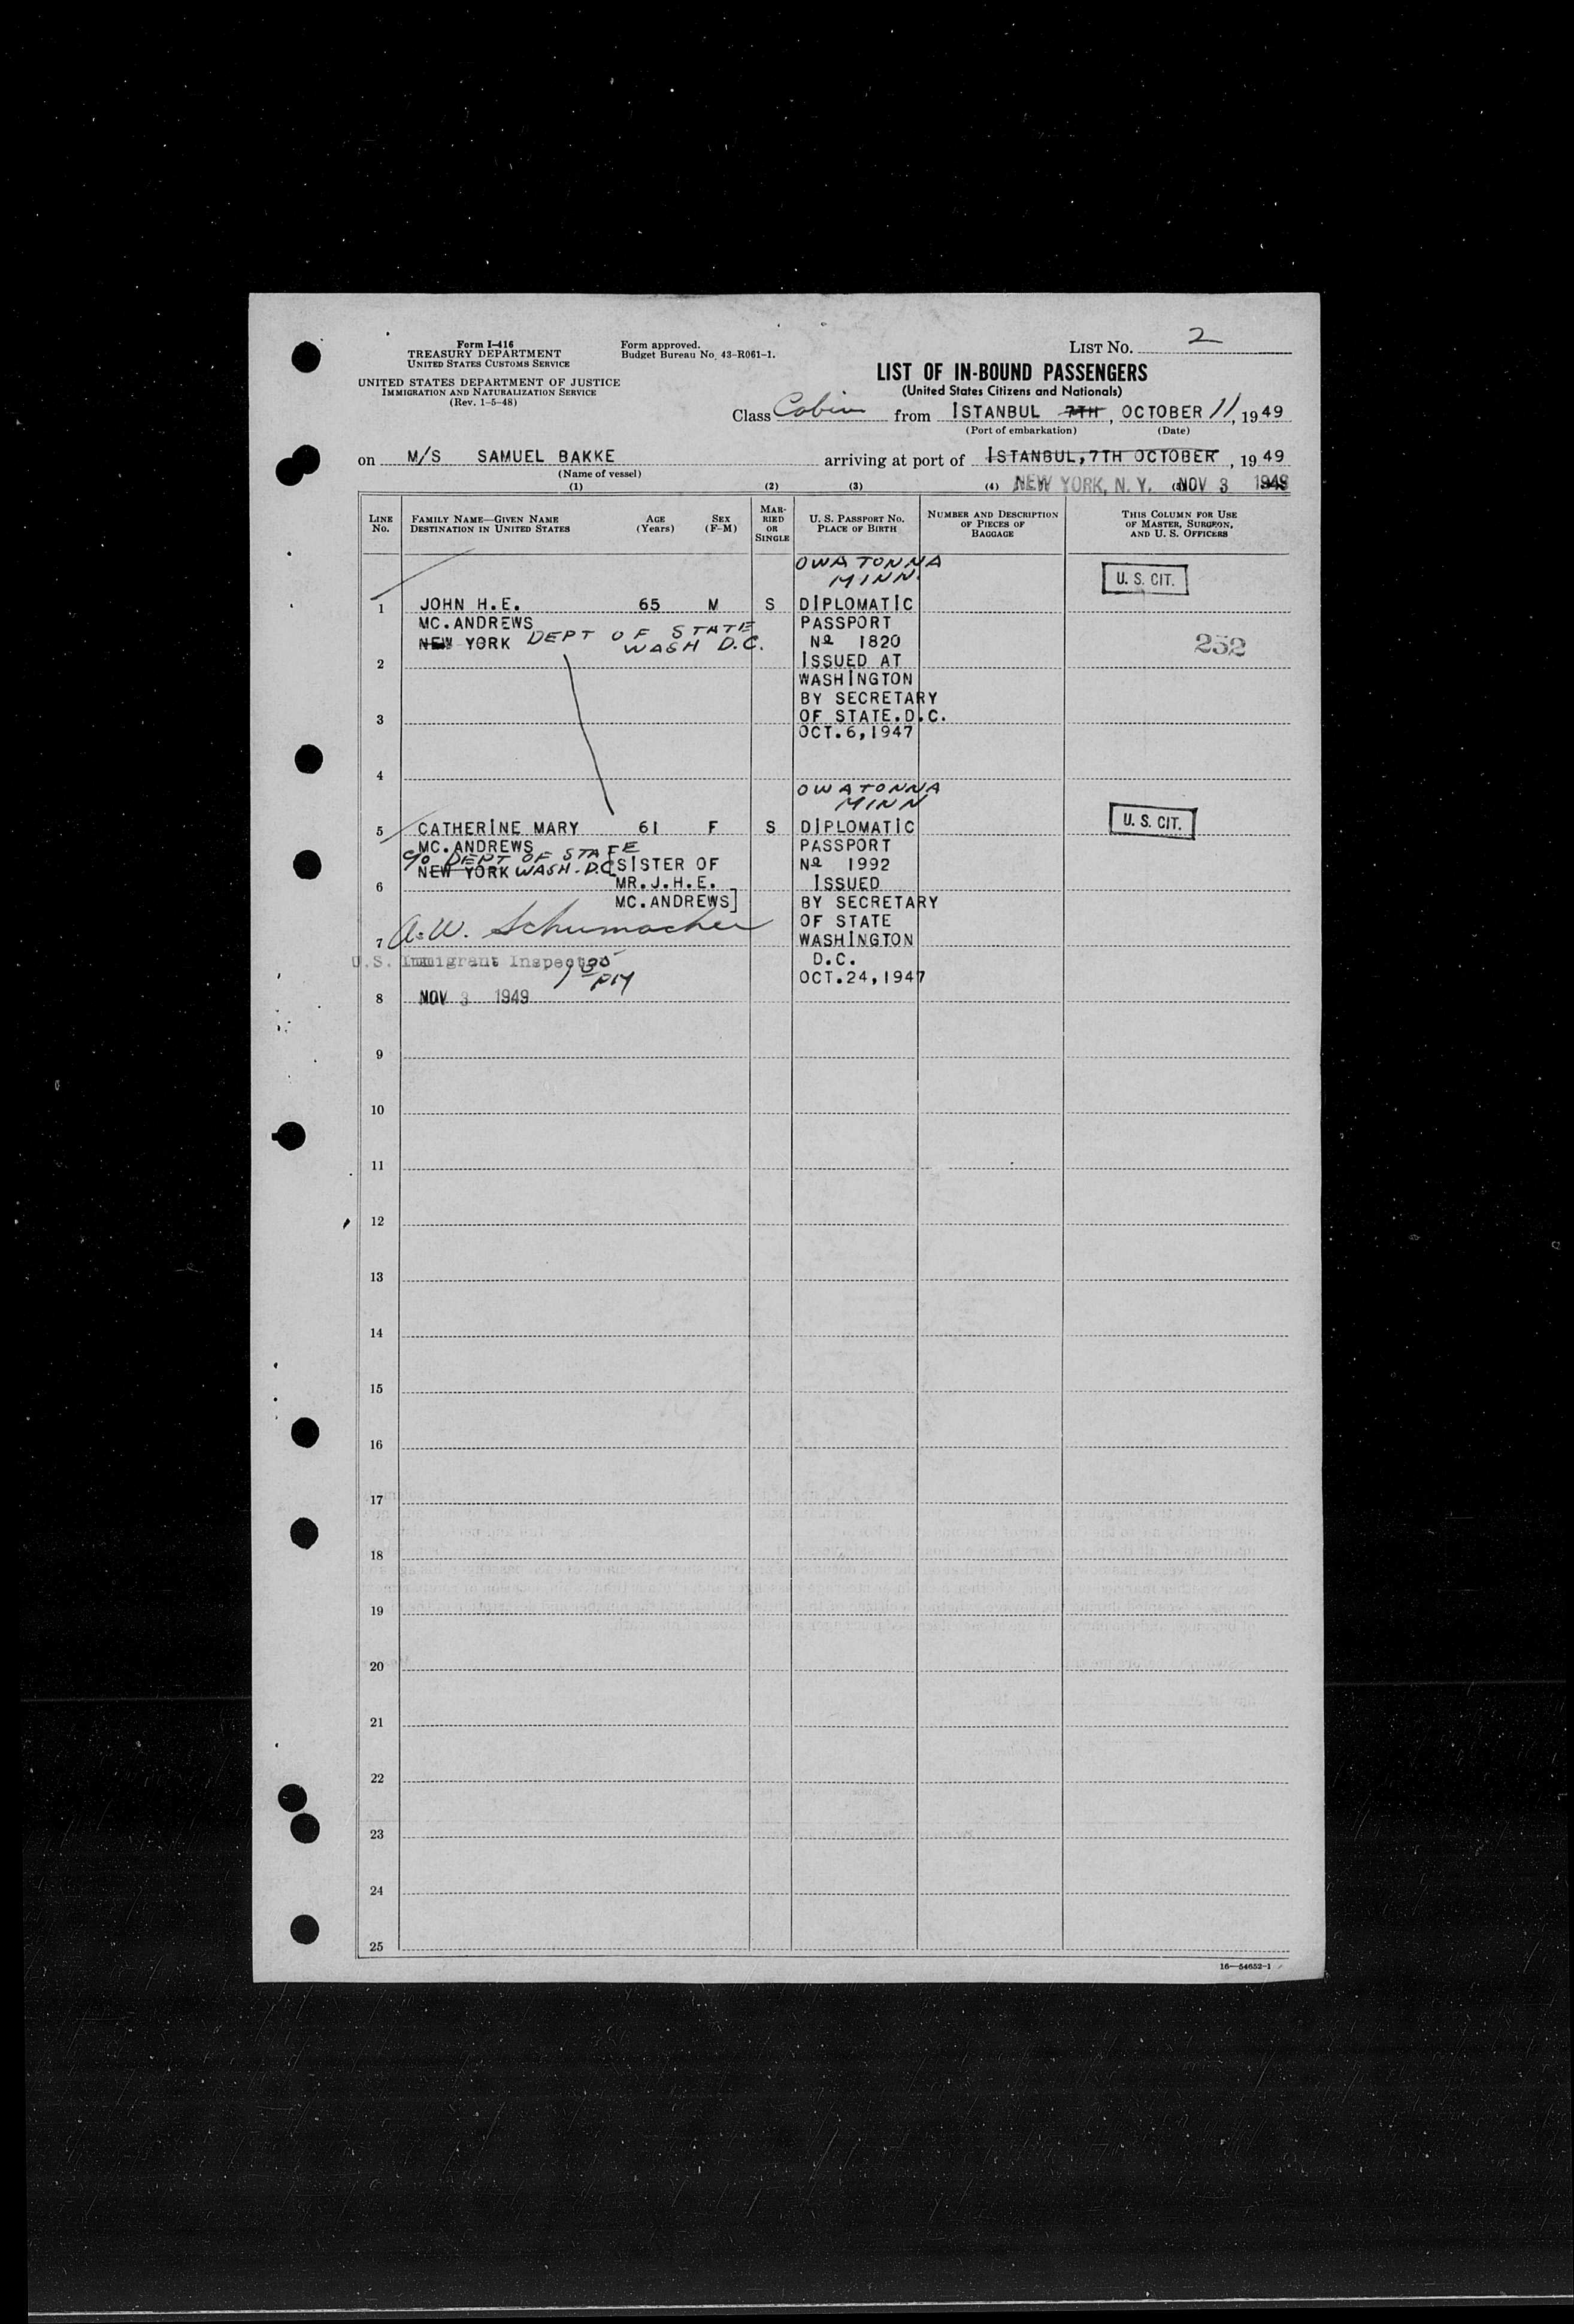 Form I-416
TREASURY DEPARTMENT
UNITED STATES CUSTOMS SERVICE
UNITED STATES DEPARTMENT OF JUSTICE
IMMIGRATION AND NATURALIZATION SERVICE
(Rev. 1-5-48)
Form approved.
Budget Bureau No. 43-R061-1.
LIST NO. 2
LIST OF IN-BOUND PASSENGERS
(United States Citizens and Nationals)
Class Cabin from ISTANBUL 7TH, OCTOBER 11, 1949
(Port of embarkation) (Date)
on M/S SAMUEL BAKKE arriving at port of ISTANBUL, 7TH OCTOBER, 1949
(Name of vessel)
NEW YORK, N. Y. NOV 3 1949
(1) (2) (3) (4)
LINE NO.
FAMILY NAME—GIVEN NAME
DESTINATION IN UNITED STATES
AGE
(Years)
SEX
(F-M)
MARRIED OR SINGLE
U. S. PASSPORT NO.
PLACE OF BIRTH
NUMBER AND DESCRIPTION
OF PIECES OF
BAGGAGE
THIS COLUMN FOR USE
OF MASTER, SURGEON,
AND U. S. OFFICERS
OWATONNA
MINN.
U. S. CIT.
1 JOHN H.E. 65 M S DIPLOMATIC
MC.ANDREWS PASSPORT
NEW YORK DEPT OF STATE
WASH D.C.
Nº 1820
252
2 ISSUED AT
WASHINGTON
BY SECRETARY
3 OF STATE.D.C.
OCT.6,1947
4
OWATONNA
MINN
U. S. CIT.
5 CATHERINE MARY 61 F S DIPLOMATIC
MC.ANDREWS PASSPORT
c/o DEPT OF STATE
NEW YORK WASH. D.C. [SISTER OF Nº 1992
6 MR.J.H.E. ISSUED
MC.ANDREWS] BY SECRETARY
OF STATE
7 A.W. Schumacher WASHINGTON
U.S. Immigrant Inspector D.C.
1 35 PM OCT.24,1947
8 NOV 3 1949
9
10
11
12
13
14
15
16
17
18
19
20
21
22
23
24
25
16—54652-1